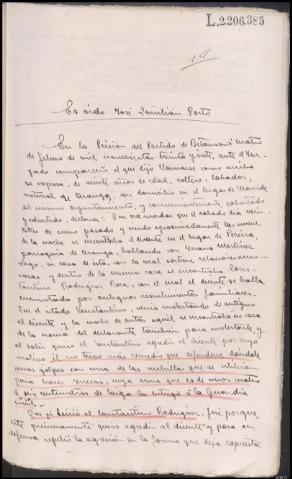 L.2206,385
19
Es oído José Quintián Porto
En la Prisión del Partido de Betanzos a cuatro
de febrero de mil novecientos treinta y siete, ante el Juz-
gado compareció el que dijo llamarse como arriba
se expresa, de veinte años de edad, soltero, labrador,
natural de Aranga, con domicilio en el lugar de
del mismo Ayuntamiento, y convenientemente exhortado
y advertido, declara: Que era verdad que el sábado día vein-
titres de enero pasado y siendo aproximadamente las nueve
de la noche se encontraba el decente en el lugar de Pereira,
parroquia de Aranga, hablando con Genara Martínez
en casa de ésta, con la cual sostiene relaciones amo-
rosas y dentro de la misma casa se encontraba Cons-
tantino Rodríguez Roca, con el cual el decente se halla
enemistado por antiguos resentimientos familiares.
Que el citado Constantino, venía molestando de antiguo
al decente, y la noche de autos aquél se encontraba en casa
de la novia del declarante también para molestarle, y
al salir quiso el Constantino agredir al decente por cuyo
motivo él no tuvo más remedio que defenderse dándole
unos golpes con una de las que se utilizan
para hacer cuya arma que es de unos cuatro
o seis centímetros de larga la entregó a la Guardia
civil.
Que si hirió al Constantino Rodríguez, fué porque
éste primeramente quiso agredir al decente y para su
defensa repelió la agresión en la forma que deja expuesta